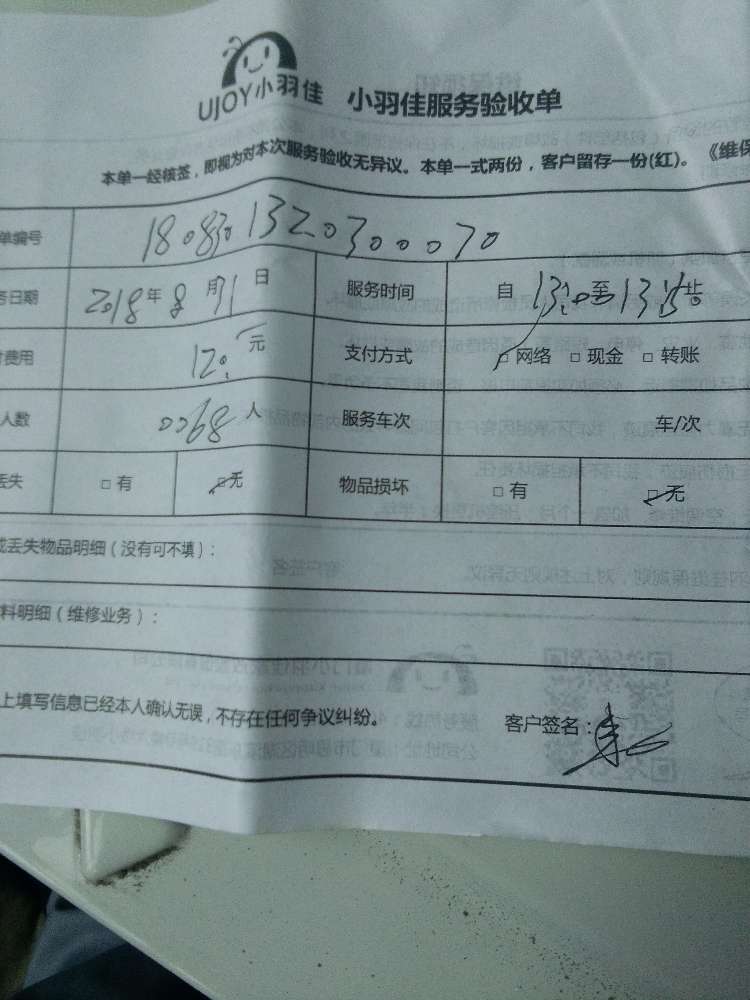 UJOY小羽佳 小羽佳服务验收单
本单一经核签，即视为对本次服务验收无异议。本单一式两份，客户留存一份(红)。《维保
单编号 1808301320300070
务日期 2018年8月31日 服务时间 自13:00至13:15止
费用 120元 支付方式 □网络 □现金 □转账
人数 0068人 服务车次 车/次
丢失 □有 □无 物品损坏 □有 □无
或丢失物品明细（没有可不填）：
料明细（维修业务）：
上填写信息已经本人确认无误，不存在任何争议纠纷。 客户签名：